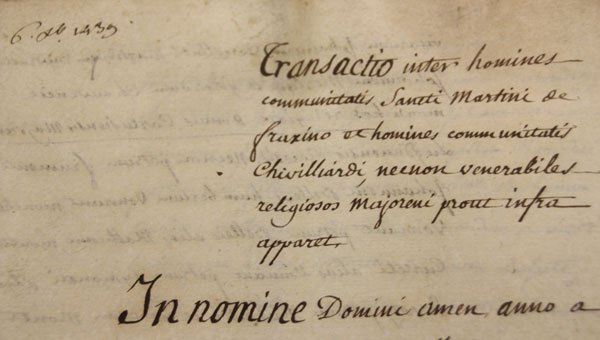 6. xbr. 1439
Transactio inter homines
communitatis Sancti Martini de
fraxino et homines communitatis
Chivilliardi, necnon venerabiles
religiosos Majoreni prout infra
apparet.
In nomine Domini amen, anno a